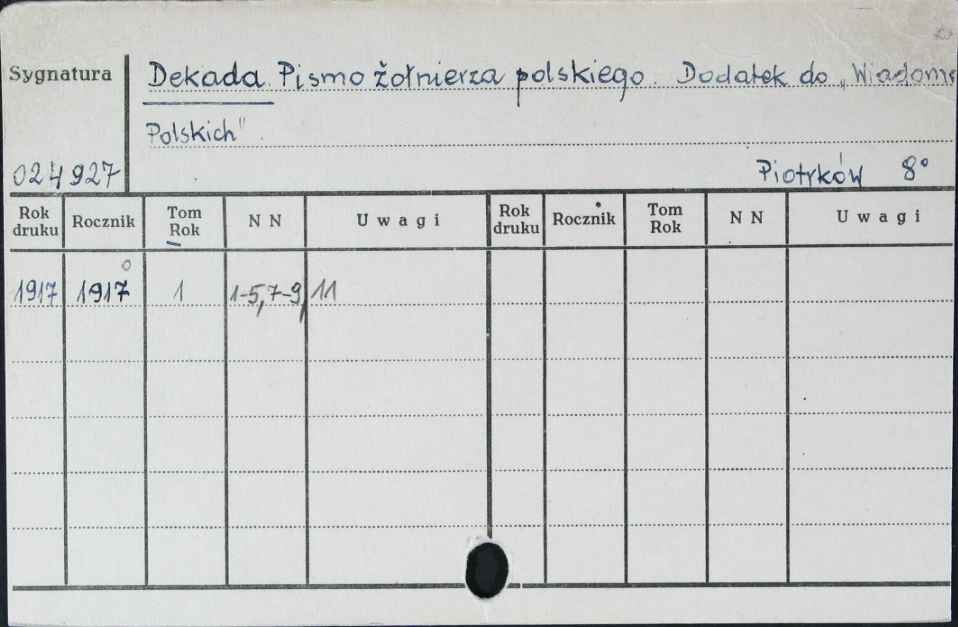 Sygnatura
Dekada. Pismo żołnierza polskiego. Dodatek do „Wiadomo
Polskich".
024927
Piotrków 8°
Rok druku Rocznik Tom Rok N N Uwagi Rok druku Rocznik Tom Rok N N Uwagi
1917 1917 1 1-5,7-9,11